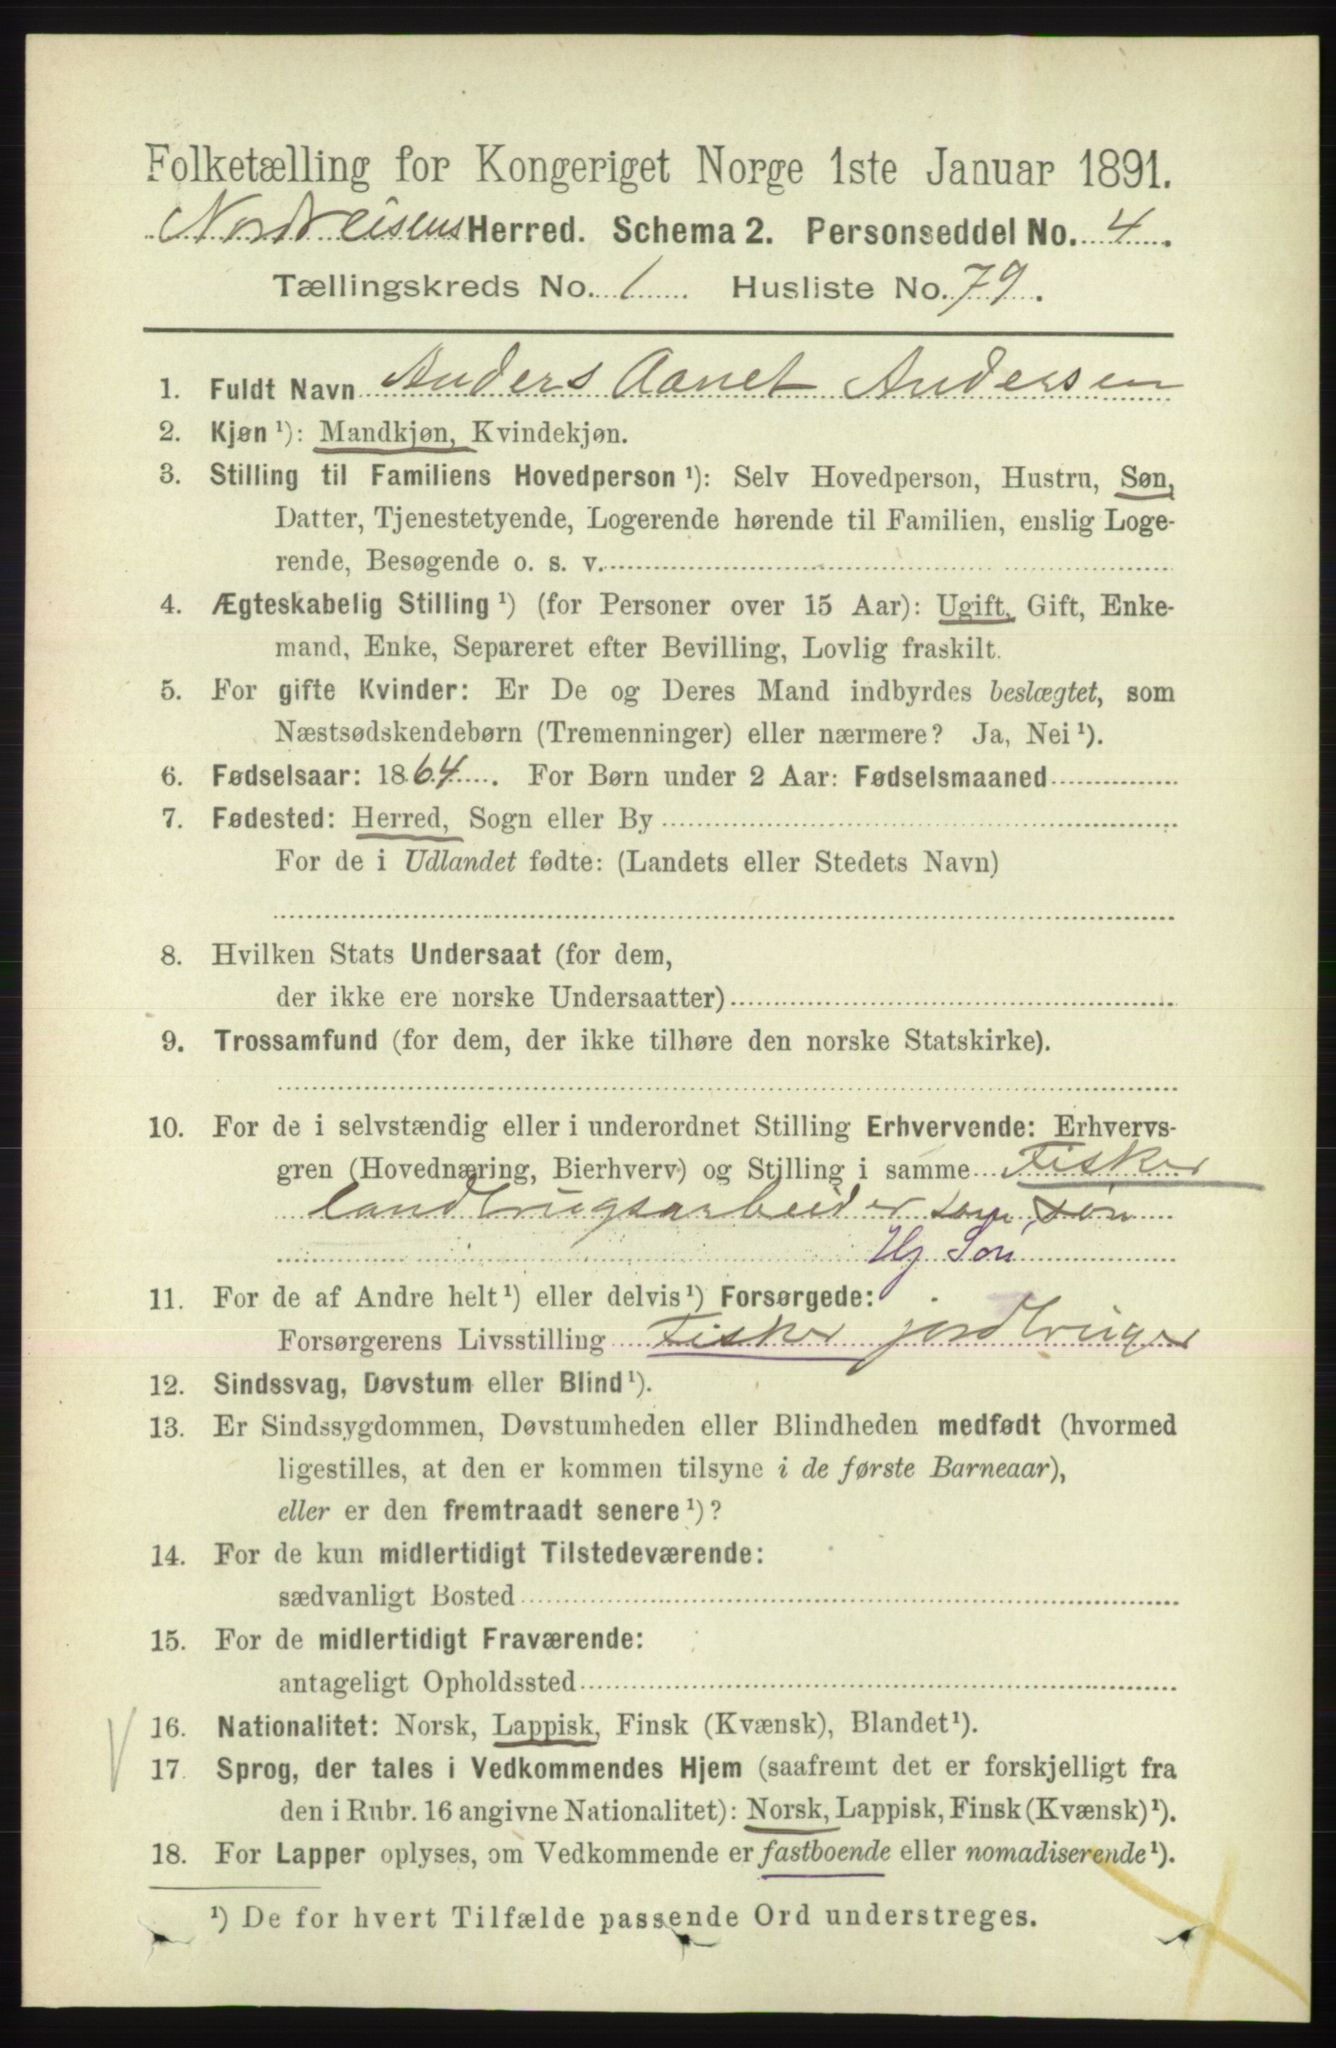 Folketælling for Kongeriget Norge 1ste Januar 1891.
Nordreisens Herred. Schema 2. Personseddel No. 4.
Tællingskreds No. 1 Husliste No. 79.
1. Fuldt Navn Anders Aanet Andersen
2. Kjøn ¹): Mandkjøn, Kvindekjøn.
3. Stilling til Familiens Hovedperson ¹): Selv Hovedperson, Hustru, Søn,
Datter, Tjenestetyende, Logerende hørende til Familien, enslig Loge-
rende, Besøgende o. s. v.
4. Ægteskabelig Stilling ¹) (for Personer over 15 Aar): Ugift, Gift, Enke-
mand, Enke, Separeret efter Bevilling, Lovlig fraskilt.
5. For gifte Kvinder: Er De og Deres Mand indbyrdes beslægtet, som
Næstsødskendebørn (Tremenninger) eller nærmere? Ja, Nei ¹).
6. Fødselsaar: 1864. For Børn under 2 Aar: Fødselsmaaned
7. Fødested: Herred, Sogn eller By
For de i Udlandet fødte: (Landets eller Stedets Navn)
8. Hvilken Stats Undersaat (for dem,
der ikke ere norske Undersaatter)
9. Trossamfund (for dem, der ikke tilhøre den norske Statskirke).
10. For de i selvstændig eller i underordnet Stilling Erhvervende: Erhvervs-
gren (Hovednæring, Bierhverv) og Stilling i samme Fisker
landbrugsarbeider som søn
Hj Søn
11. For de af Andre helt ¹) eller delvis ¹) Forsørgede:
Forsørgerens Livsstilling Fisker jordbruger
12. Sindssvag, Døvstum eller Blind ¹).
13. Er Sindssygdommen, Døvstumheden eller Blindheden medfødt (hvormed
ligestilles, at den er kommen tilsyne i de første Barneaar),
eller er den fremtraadt senere ¹)?
14. For de kun midlertidigt Tilstedeværende:
sædvanligt Bosted
15. For de midlertidigt Fraværende:
antageligt Opholdssted
16. Nationalitet: Norsk, Lappisk, Finsk (Kvænsk), Blandet ¹).
17. Sprog, der tales i Vedkommendes Hjem (saafremt det er forskjelligt fra
den i Rubr. 16 angivne Nationalitet): Norsk, Lappisk, Finsk (Kvænsk) ¹).
18. For Lapper oplyses, om Vedkommende er fastboende eller nomadiserende ¹).
¹) De for hvert Tilfælde passende Ord understreges.